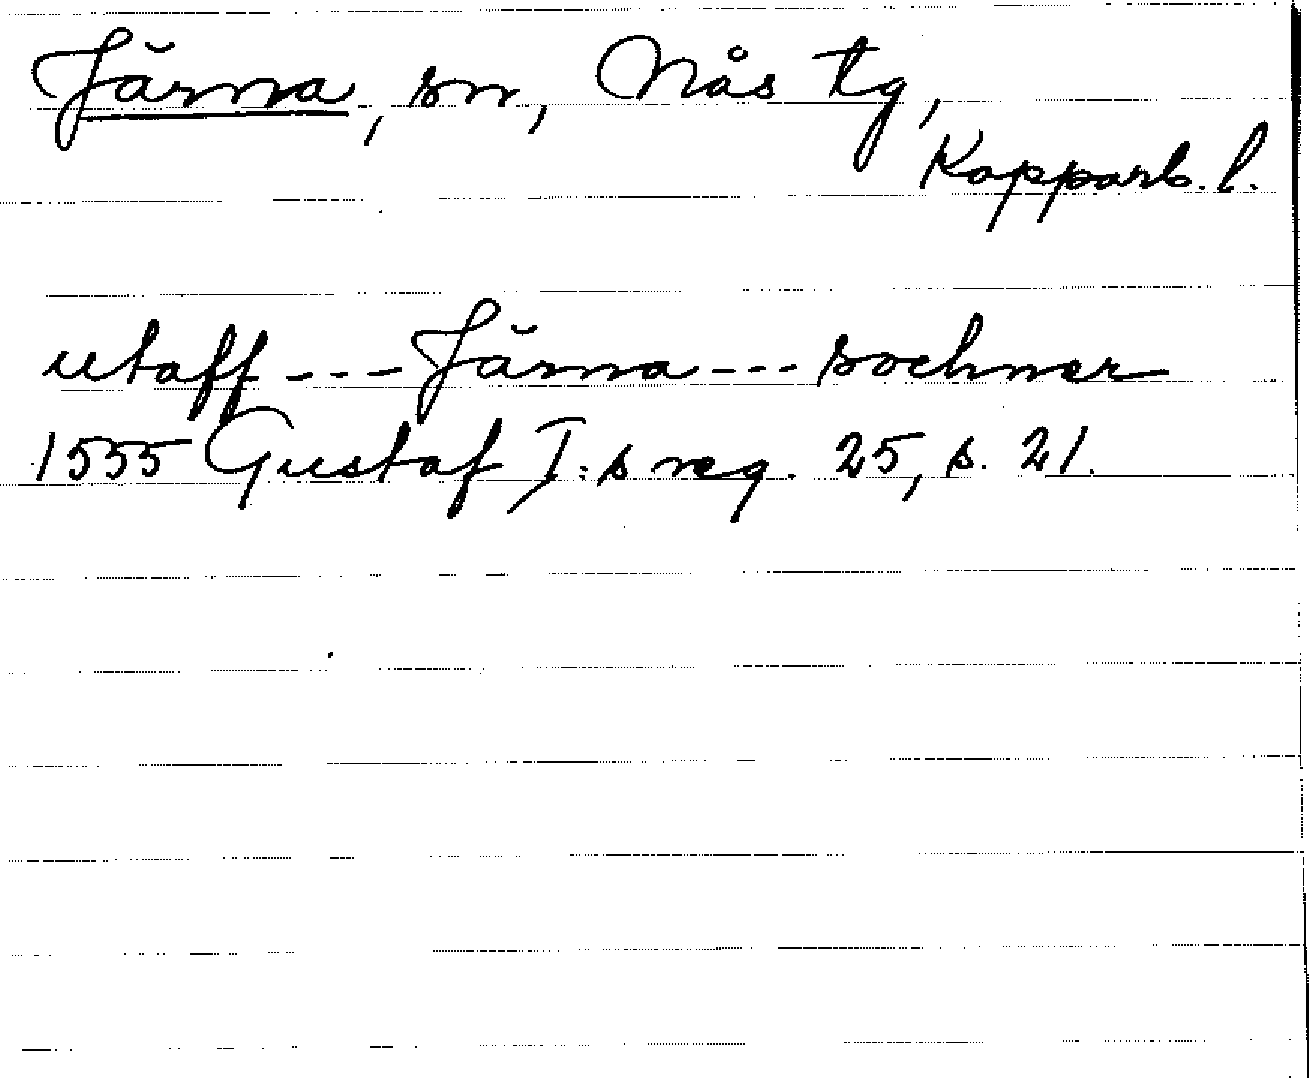 Järna, sn, Nås tg,
Kopparb. l.
utaff --- Järna --- sochner
1555 Gustaf I:s reg. 25, s. 21.